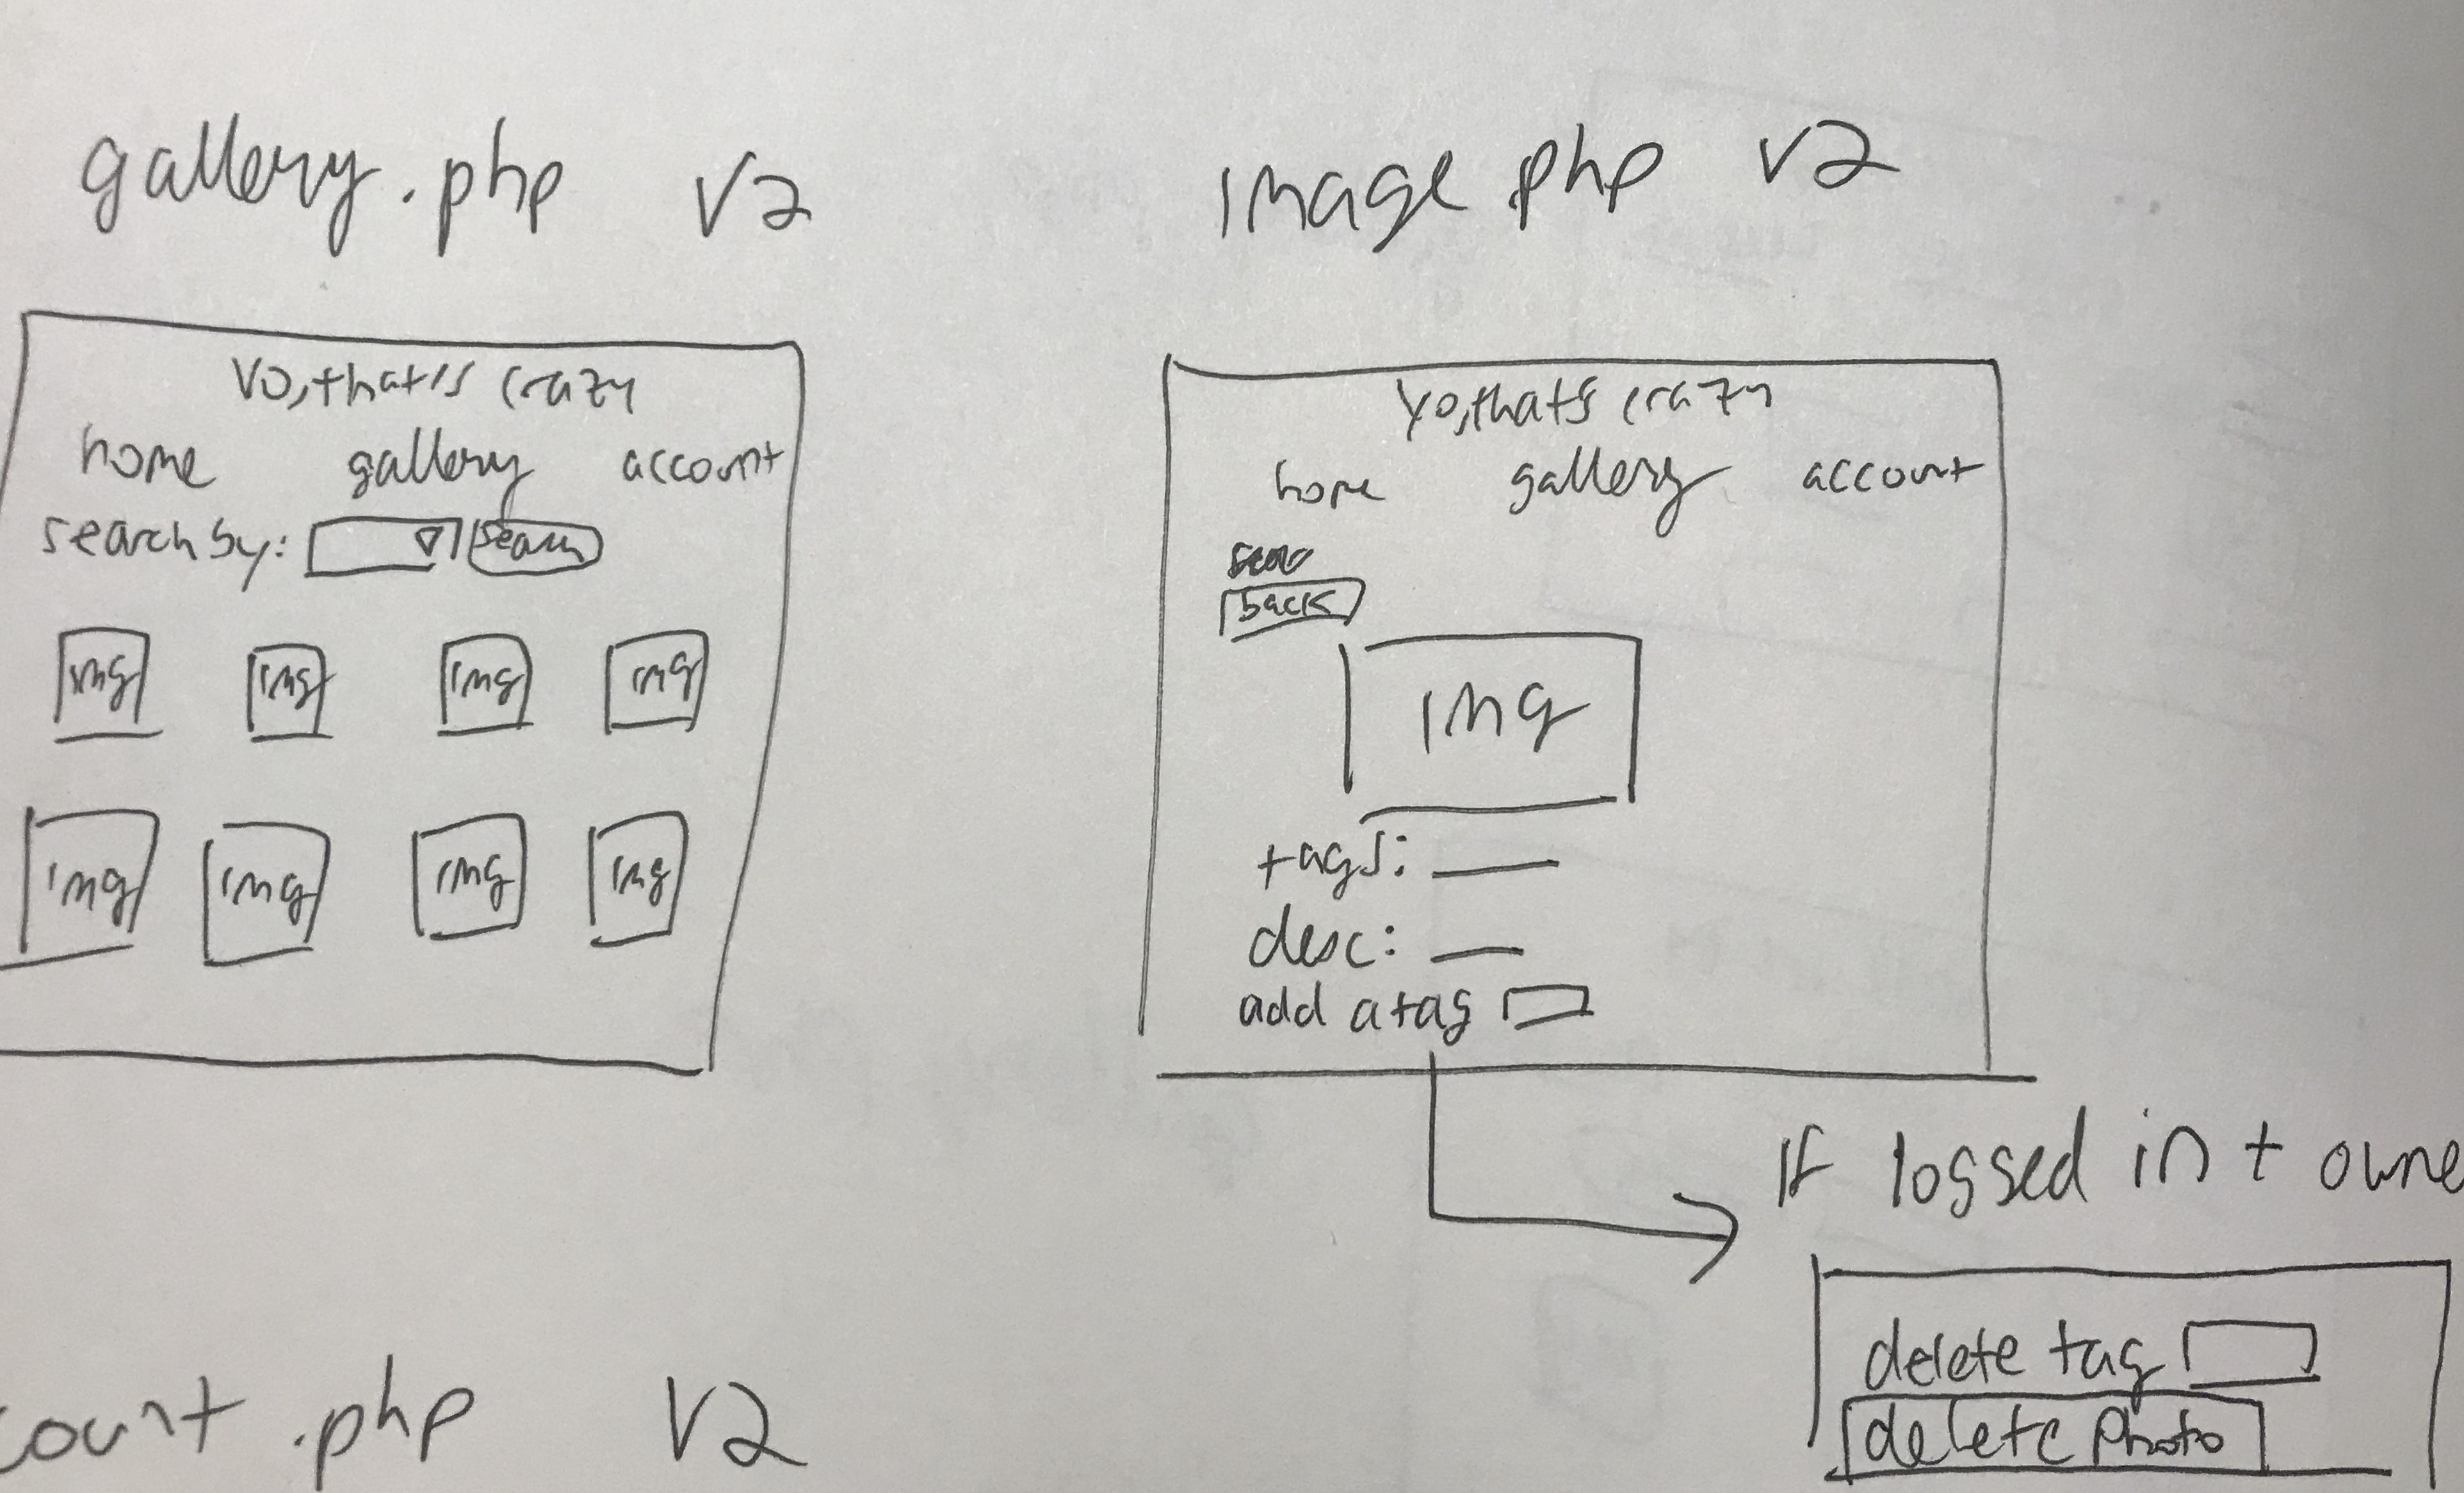 gallery.php v2
Yo, that's crazy
home gallery account
search by: search
img img img img
img img img img
image.php v2
Yo, that's crazy
home gallery account
back
img
tags:
desc:
add a tag
If logged in + owne
delete tag
delete photo
count.php v2